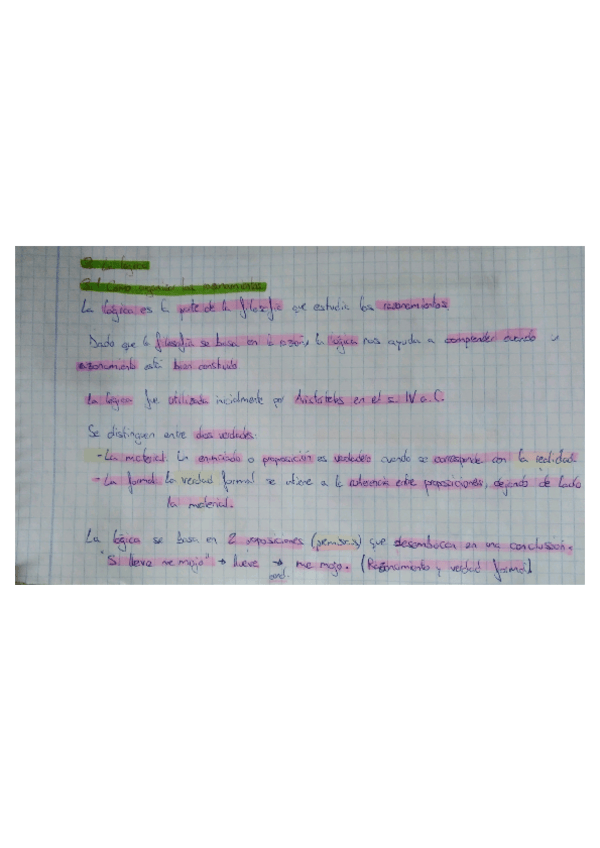 La lógica
Cómo organizar los razonamientos
La lógica es la parte de la filosofía que estudia los razonamientos.
Dado que la filosofía se basa en la razón, la lógica nos ayuda a comprender cuando
razonamiento está bien construido.
La lógica fue utilizada inicialmente por Aristóteles en el s. IV a.C.
Se distinguen entre dos verdades:
- La material: Un enunciado o proposición es verdadero cuando se corresponde con la realidad.
- La formal: La verdad formal se atiene a la coherencia entre proposiciones, dejando de lado
la material.
La lógica se basa en 2 proposiciones (premisas) que desembocan en una conclusión.
"Si llueve me mojo" → llueve → me mojo. (Razonamiento y verdad formal)
cond.